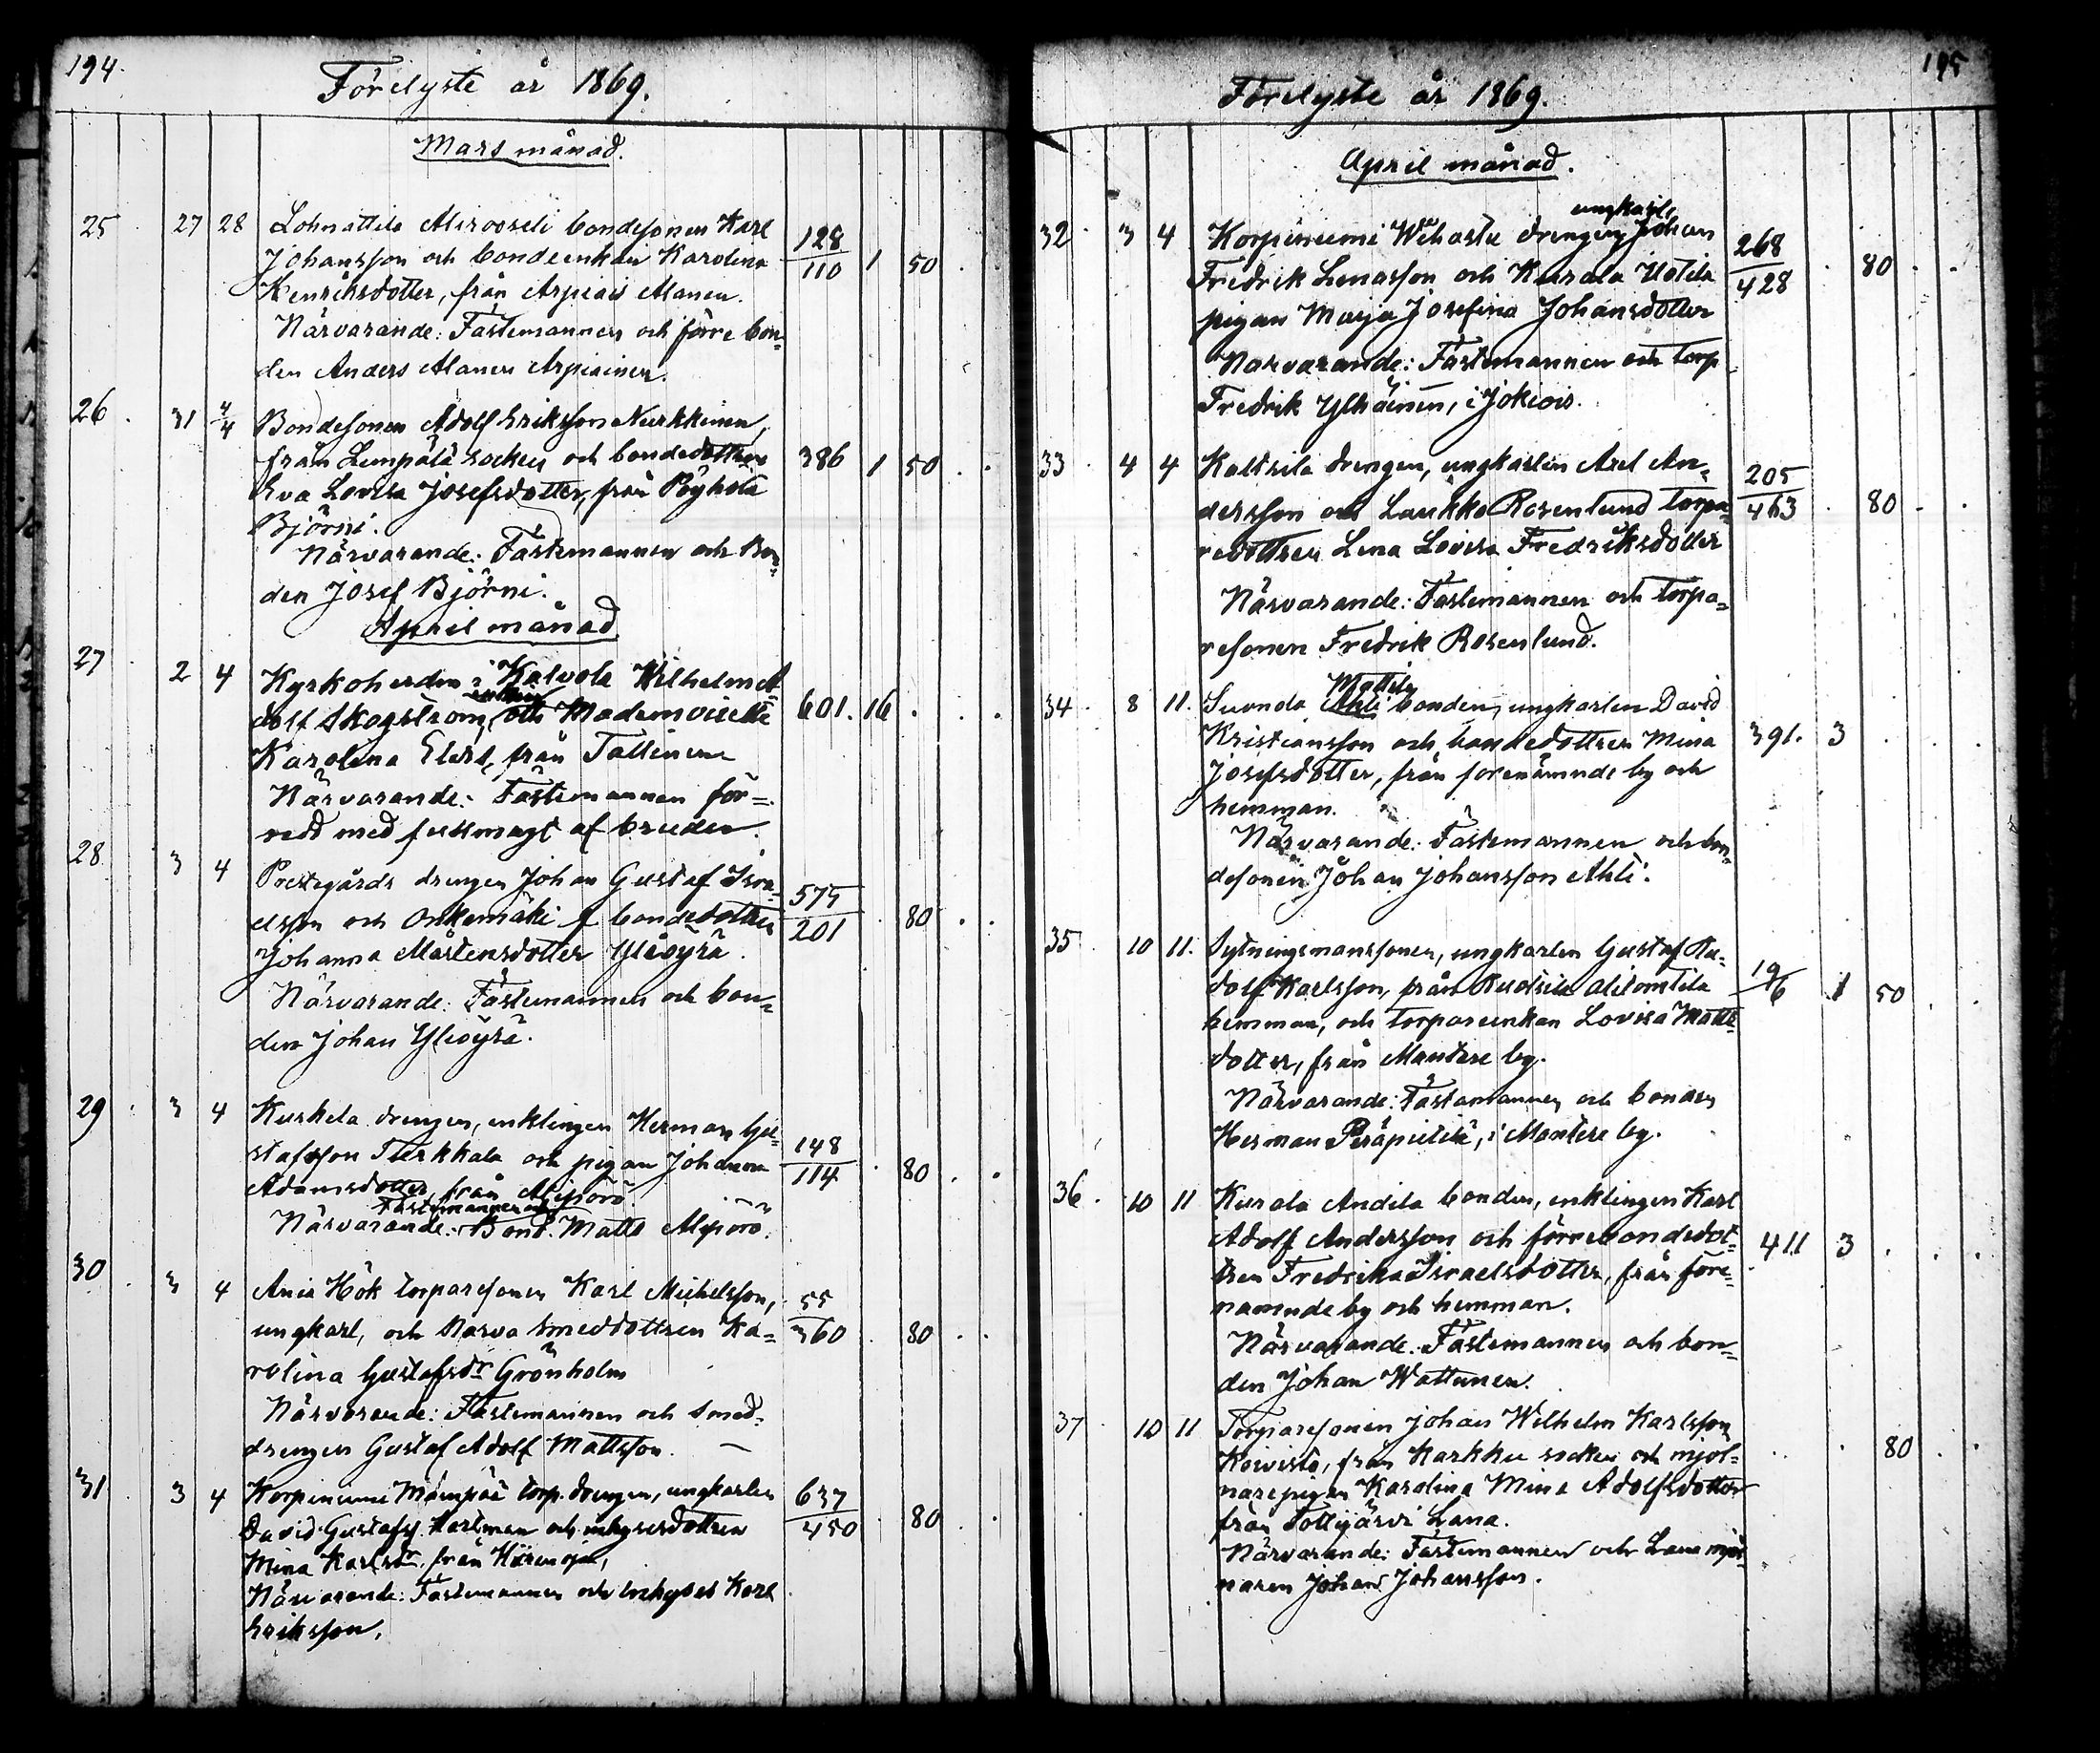 194.
Förelyste år 1869.
Mars månad.
25 27 28 Lohnattila Alirooseli bondesonen Karl 128
Johansson och bondeenkan Karolina 110 1 50
Henriksdotter, från Arpiais Alanen.
Närvarande: Fästemannen och förre bon-
den Anders Alanen Arpiainen.
26 31 4/4 Bondesonen Adolf Eriksson Nurkkinen,
från Lempälä socken och bondedottren 386 1 50
Eva Lovisa Josefsdotter, från Pöyhölä
Björni.
Närvarande: Fästemannen och Bon-
den Josef Björni.
April månad
27 2 4 Kyrkoherden i Kalvola Wilhelm A
dolf Skogström, och Mademoiselle 601. 16
Karolina Elers, från Tattinen
Närvarande: Fästemannen för-
sedd med fullmagt af bruden.
28 3 4 Prestegårds drengen Johan Gustaf Isra- 575
elsson och Onkemäki f bondedottren 201 80
Johanna Mårtensdotter Yliöyrä.
Närvarande: Fästemannen och bon-
den Johan Yliöyrä.
29 3 4 Kurkela drengen, enklingen Herman Gu- 148
stafsson Turkkala och pigan Johanna 114 80
Adamsdotter, från Alipörö
Fästemannen och
Närvarande: Bond. Matts Alipörö.
30 3 4 Ania Hök torparesonen Karl Michelsson, 55
ungkarl, och Narva smeddottren Ka- 360 80
rolina Gustafsdr Grönholm
Närvarande: Fästemannen och smed-
drengen Gustaf Adolf Mattsson. —
31 3 4 Korpiniemi Mämpää torp. drengen, ungkarlen 637
David Gustafss. Hartman och inhysesdottren 450 80
Mina Karlsdr, från
Närvarande: Fästemannen och inhyses Karl
Eriksson.
195
Förelyste år 1869.
April månad.
ungkarlen
32 3 4 Korpiniemi Wihastu drengen Johan 268
Fredrik Lenasson och Kurala Uotila 428 80
pigan Marja Josefina Johansdotter
Närvarande: Fästemannen och torp
Fredrik Ylhäinen, i Jokiois.
33 4 4 Kaltsila drengen, ungkarlen Axel An- 205
dersson och Laukko Rosenlund torpa- 463 80
redottren Lena Lovisa Fredriksdotter
Närvarande: Fästemannen och torpa-
resonen Fredrik Rosenlund.
Mattila
34 8 11. Suonda Ahli bonden, ungkarlen David
Kristiansson och bondedottren Mina 391. 3
Josefsdotter, från förenämnde by och
hemman.
Närvarande: Fästemannen och bon-
desonen Johan Johansson Ahli.
35 10 11. Sytningsmanssonen, ungkarlen Gustaf Ru-
dolf Karlsson, från 19/6 1 50
hemman, och torpareenkan Lovisa Matts
dotter, från Mantere by.
Närvarande: Fästemannen och bonden
Herman Peräpietilä, i Mantere by.
36 10 11 Kurala Andila bonden, enklingen Karl
Adolf Andersson och förre bondedot- 411 3
tren Fredrika Israelsdotter, från före-
nämnde by och hemman.
Närvarande: Fästemannen och bon-
den Johan Wattunen.
37 10 11 Torparesonen Johan Wilhelm Karlsson
Koivisto, från Karkku socken och mjöl- 80
narepigan Karolina Mina Adolfsdotter
från Tottijärvi Lana.
Närvarande: Fästemannen och Lana mjöl
naren Johan Johansson.